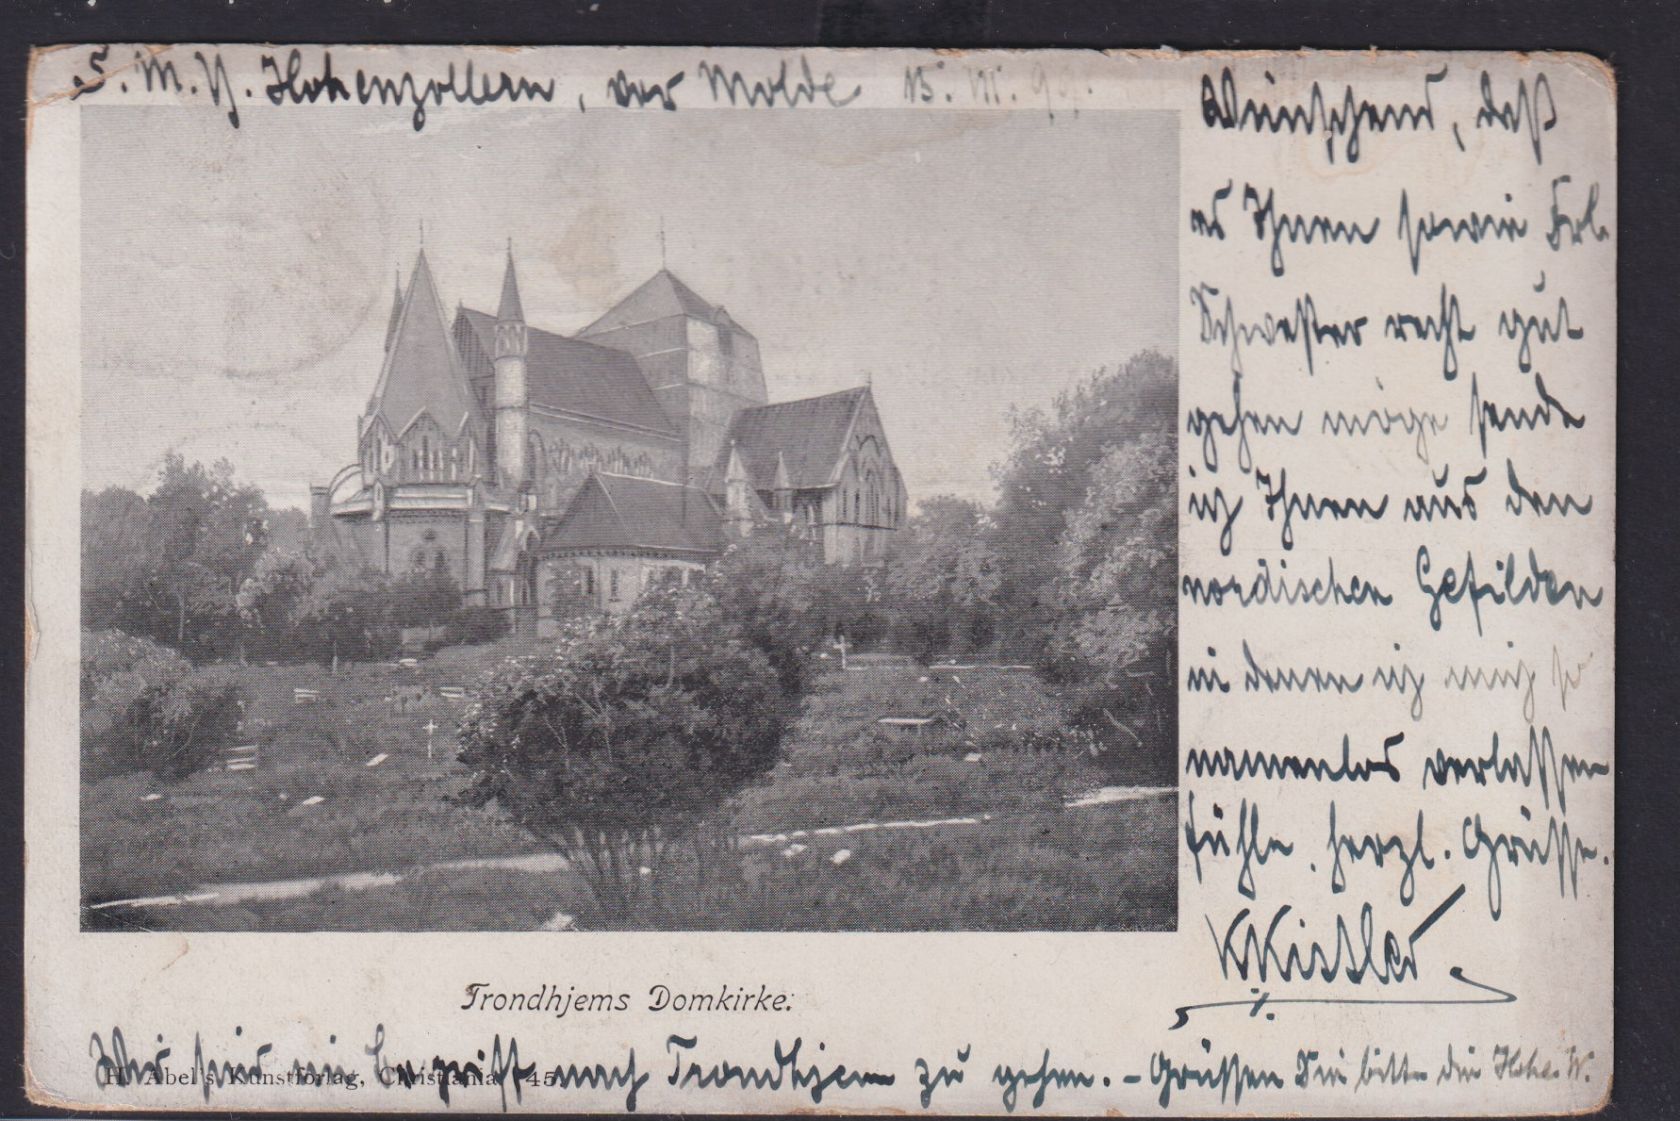 S. M. Y. Hohenzollern, vor Molde 15. VII. 99.
Wünschend, daß
es Ihnen sowie Frl.
Schwester recht gut
gehen möge sende
ich Ihnen aus den
nordischen Gefilden
in denen ich mich so
namenlos verlassen
fühle, herzl. Grüsse.
KKistler
Trondhjems Domkirke.
Wir sind im Begriff nach Trondhjem zu gehen. - Grüssen Sie bitte die
H. Abel's Kunstforlag, Christiania 45.